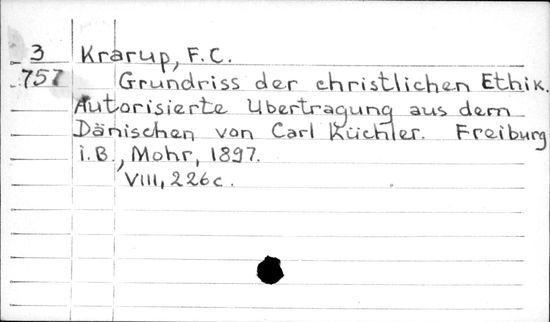 3 Krarup, F.C.
757 Grundriss der christlichen Ethik.
Autorisierte Ubertragung aus dem
Dänischen von Carl Küchler. Freiburg
i.B., Mohr, 1897.
VIII, 226c.